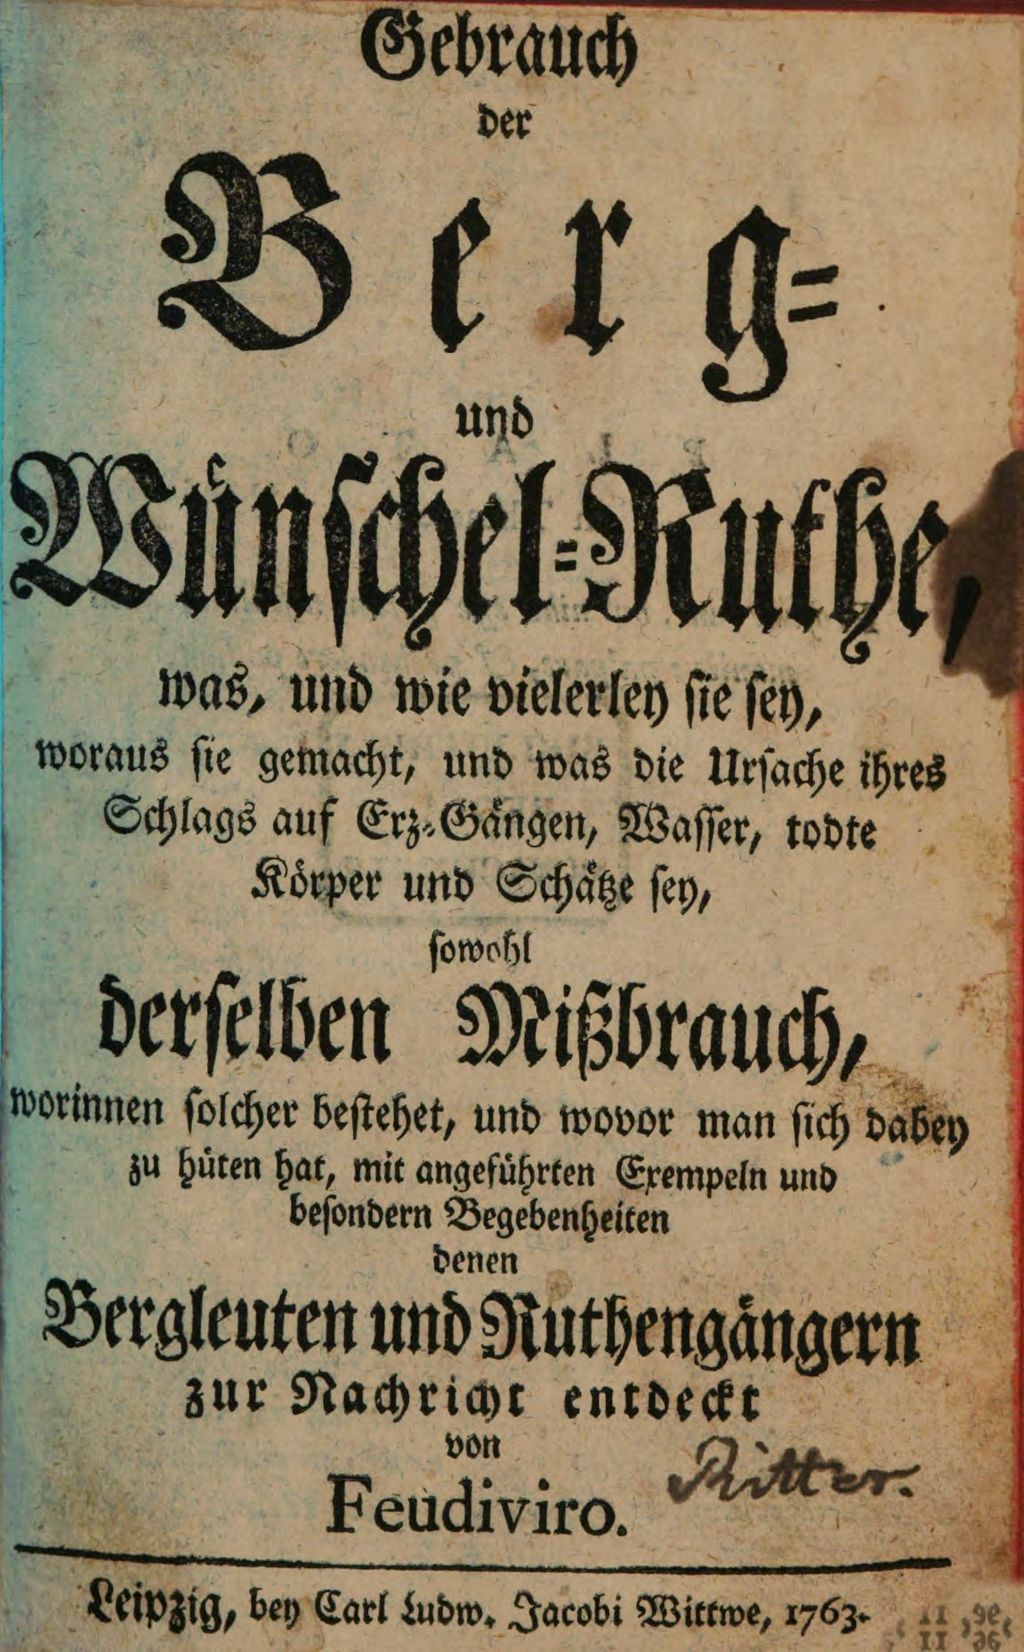 Gebrauch
der
Berg=
und
Wünschel=Ruthe,
was, und wie vielerley sie sey,
woraus sie gemacht, und was die Ursache ihres
Schlags auf Erz=Gängen, Wasser, todte
Körper und Schätze sey,
sowohl
derselben Mißbrauch,
worinnen solcher bestehet, und wovor man sich dabey
zu hüten hat, mit angeführten Exempeln und
besondern Begebenheiten
denen
Bergleuten und Ruthengängern
zur Nachricht entdeckt
von
Feudiviro. Ritter.
Leipzig, bey Carl Ludw. Jacobi Wittwe, 1763.